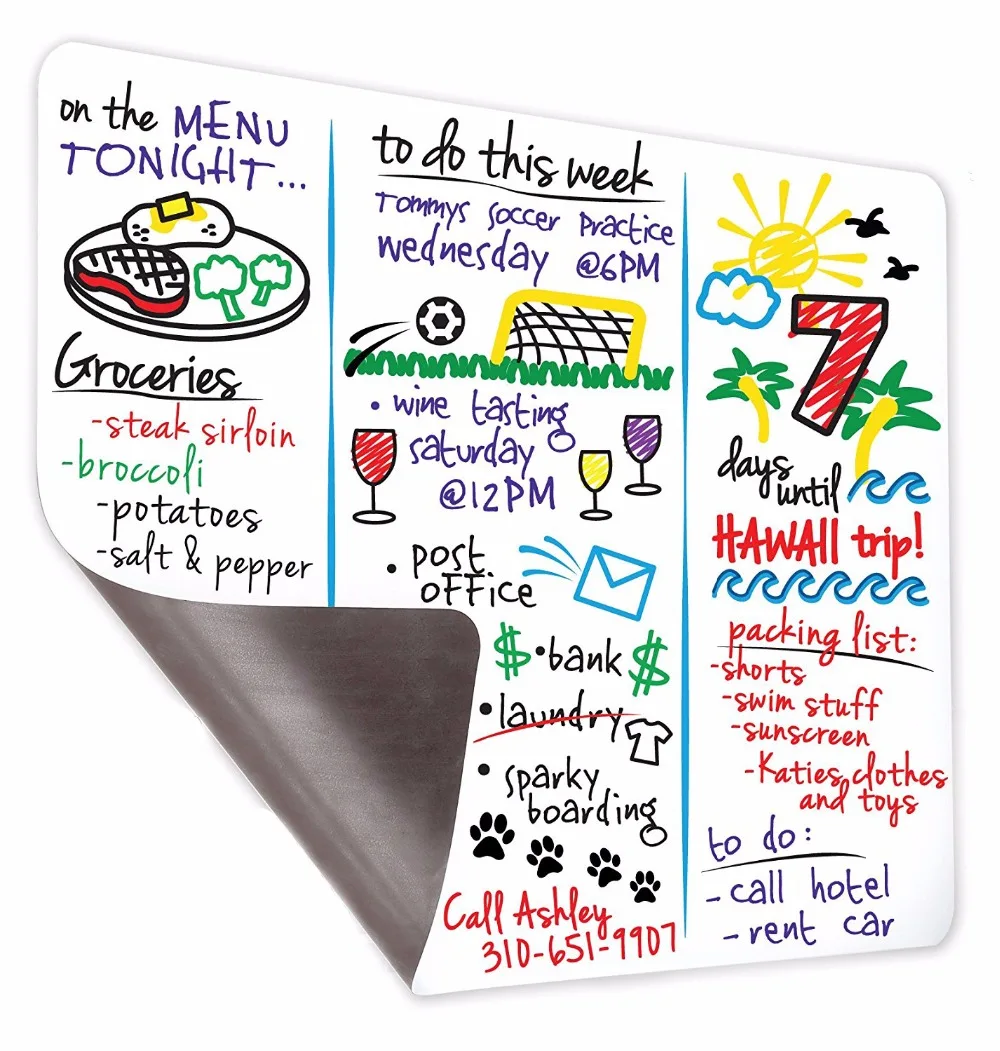 on the MENU
TONIGHT...
Groceries
-steak sirloin
-broccoli
-potatoes
-salt & pepper
to do this week
Tommys soccer practice
wednesday @6PM
• wine tasting
saturday
@12PM
• post
office
$ •bank $
• laundry
• sparky
boarding
Call Ashley
310-651-9907
7
days
until
HAWAII trip!
packing list:
-shorts
-swim stuff
-sunscreen
-Katies clothes
and toys
to do:
- call hotel
- rent car